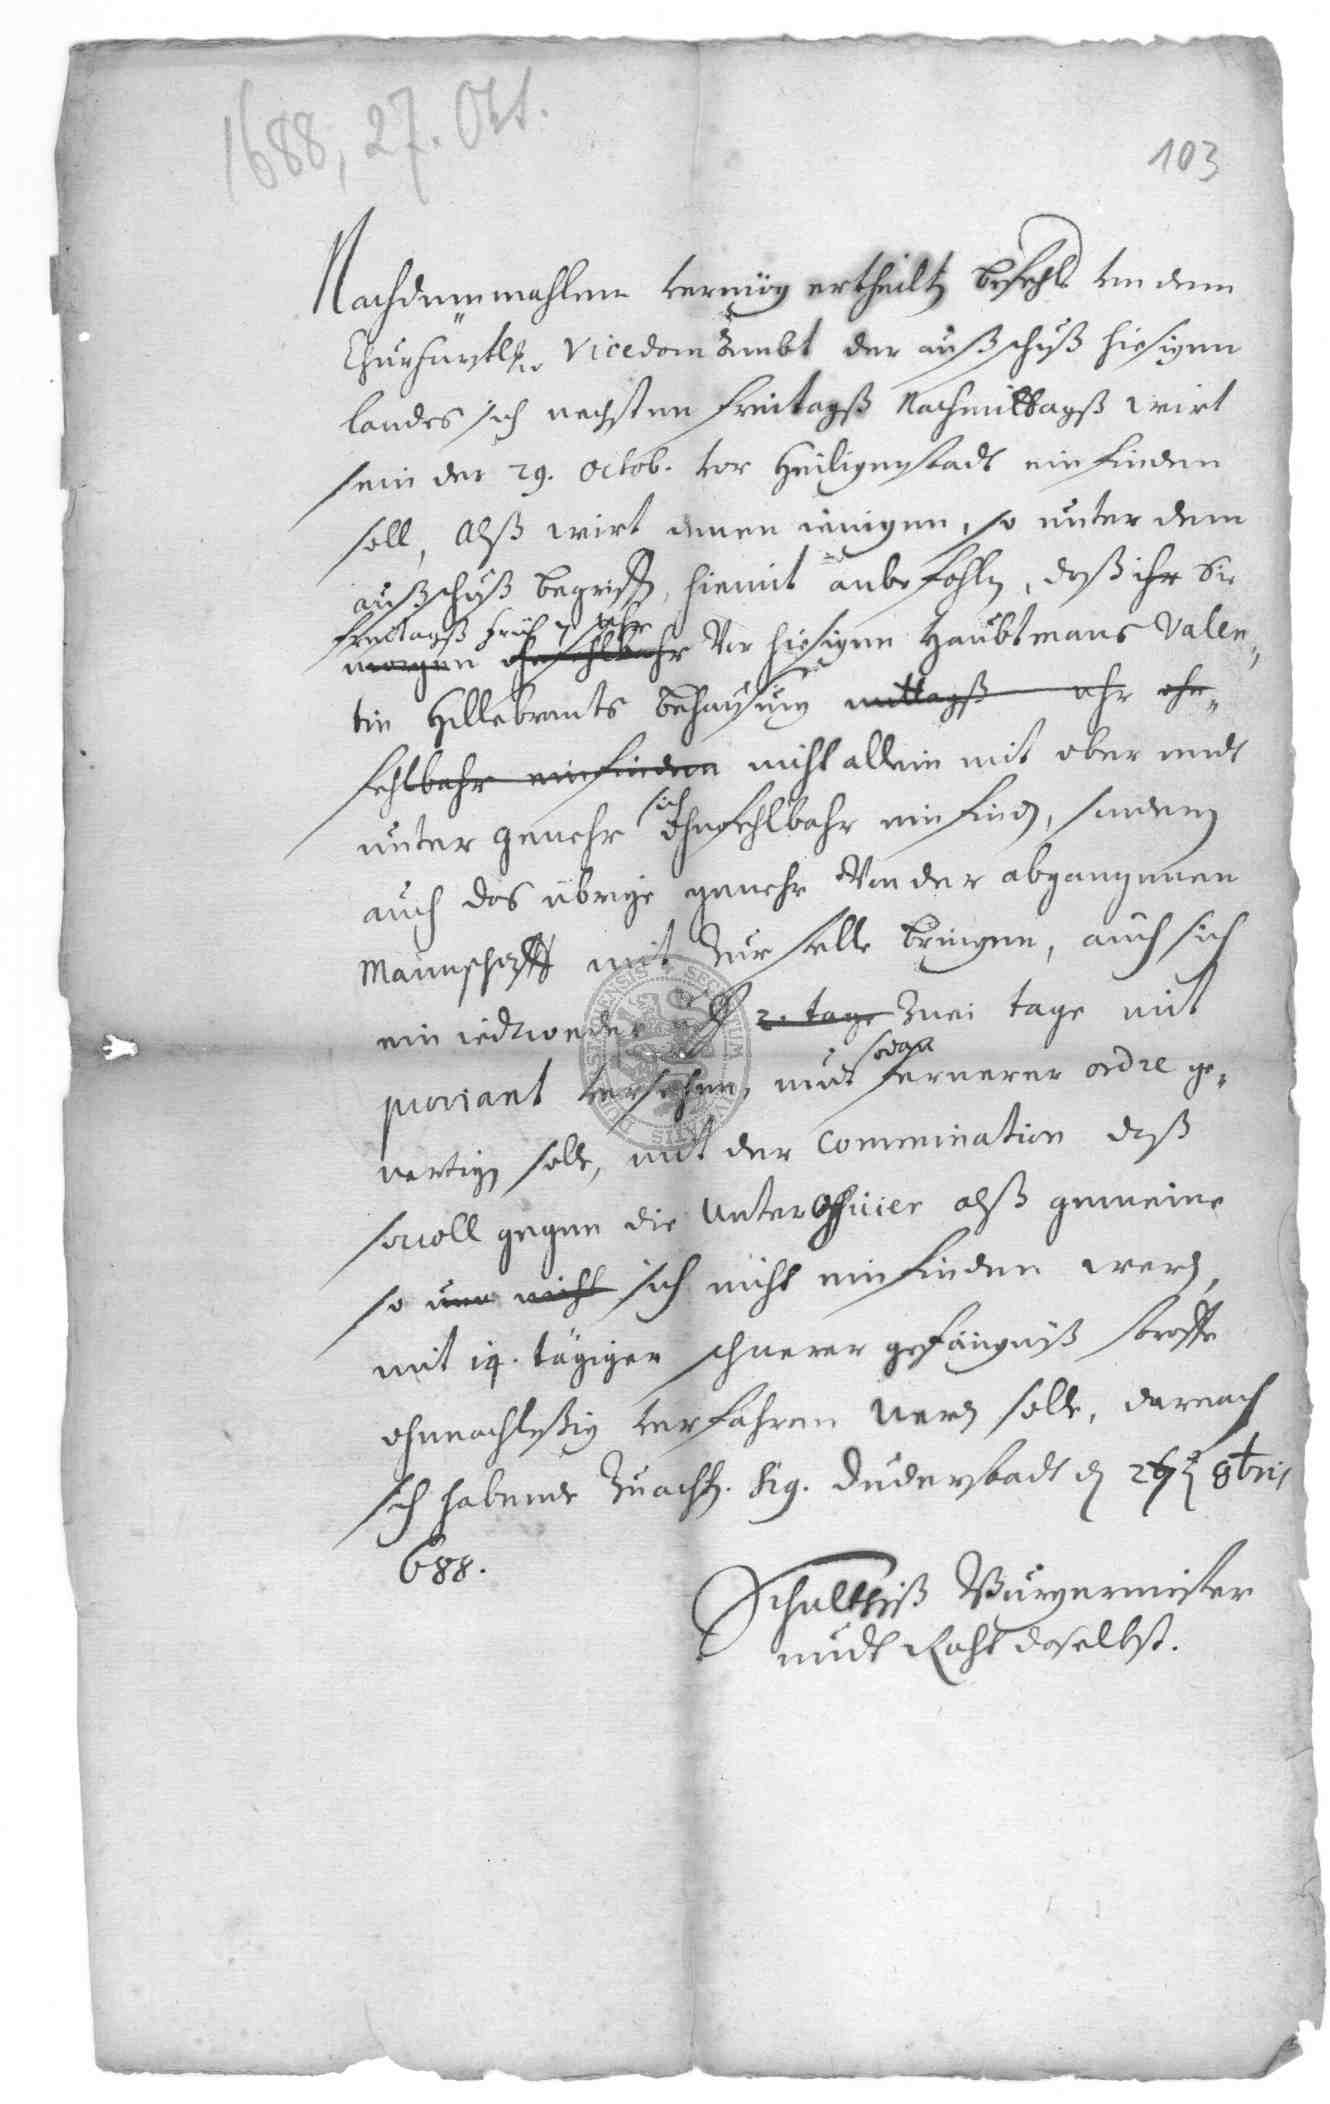 1688, 27. Okt.
103
Nachdemmahlen vermög ertheilts befehls von dem
Churfürstl. Vicedom Ambt der außschuß hiesigen
landes sich nechsten freitagß Nachmittagß wirt
sein der 29. Octob. vor Heiligenstadt einfinden
soll, Alß wirt denen ienigen, so unter dem
außschuß begriffen, hiemit anbefohlen, daß ihr Sie
freitagß früh 7 uhr
morgen ohnfehlbahr Vor hiesigen Haubtmans Valen-
tin Hillebrants behausung mittagß uhr ohn-
fehlbahr einfinden nicht allein mit ober undt
unter gewehr sich ohnfehlbahr einfinden, sondern
auch das übrige gewehr Von der abgangenen
Manschafft mit zur stelle bringen, auch sich
ein iedtweder auf 2. tage zwei tage mit
proviant versehen, undt sodan fernerer ordre ge-
wertig solle, mit der Commination daß
sowoll gegen die Unterofficier alß gemeine
so nicht sich nicht einfinden werden,
mit 14. tägiger schwerer gefängnüß straffe
ohnnachleßig verfahren werden solle, darnach
sich habende zu achten. Sig. Duderstadt den 27 8bris
688.
Schultheiß Burgermeister
undt Raht daselbst.
SIGILLUM SECRETUM CIVITATIS DUDERSTADENSIS